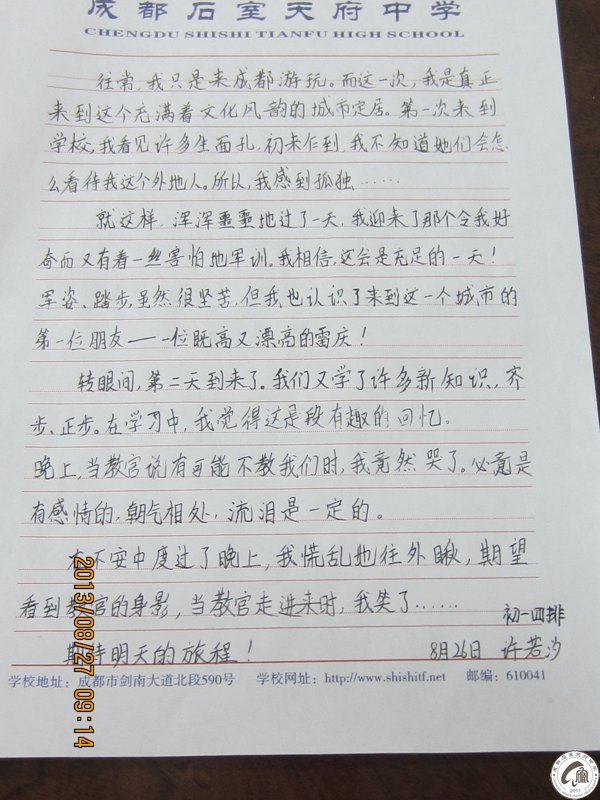 成都石室天府中学
CHENGDU SHISHI TIANFU HIGH SCHOOL
往常,我只是来成都游玩。而这一次,我是真正
来到这个充满着文化风韵的城市定居。第一次来到
学校,我看见许多生面孔,初来乍到,我不知道她们会怎
么看待我这个外地人。所以,我感到孤独……
就这样,浑浑噩噩地过了一天,我迎来了那个令我好
奇而又有着一丝害怕地军训。我相信,这会是充足的一天!
军姿、踏步,虽然很坚苦,但我也认识了来到这一个城市的
第一位朋友——一位既高又漂亮的雷庆!
转眼间,第二天到来了。我们又学了许多新知识,齐
步、正步。在学习中,我觉得这是段有趣的回忆。
晚上,当教官说有可能不教我们时,我竟然哭了。必竟是
有感情的,朝气相处,流泪是一定的。
在不安中度过了晚上,我慌乱地往外瞅,期望
看到教官的身影,当教官走进来时,我笑了……
初一四排
期待明天的旅程!
8月26日 许若汐
学校地址:成都市剑南大道北段590号 学校网址:http://www.shishitf.net 邮编:610041
2013/08/27 09:14
2011